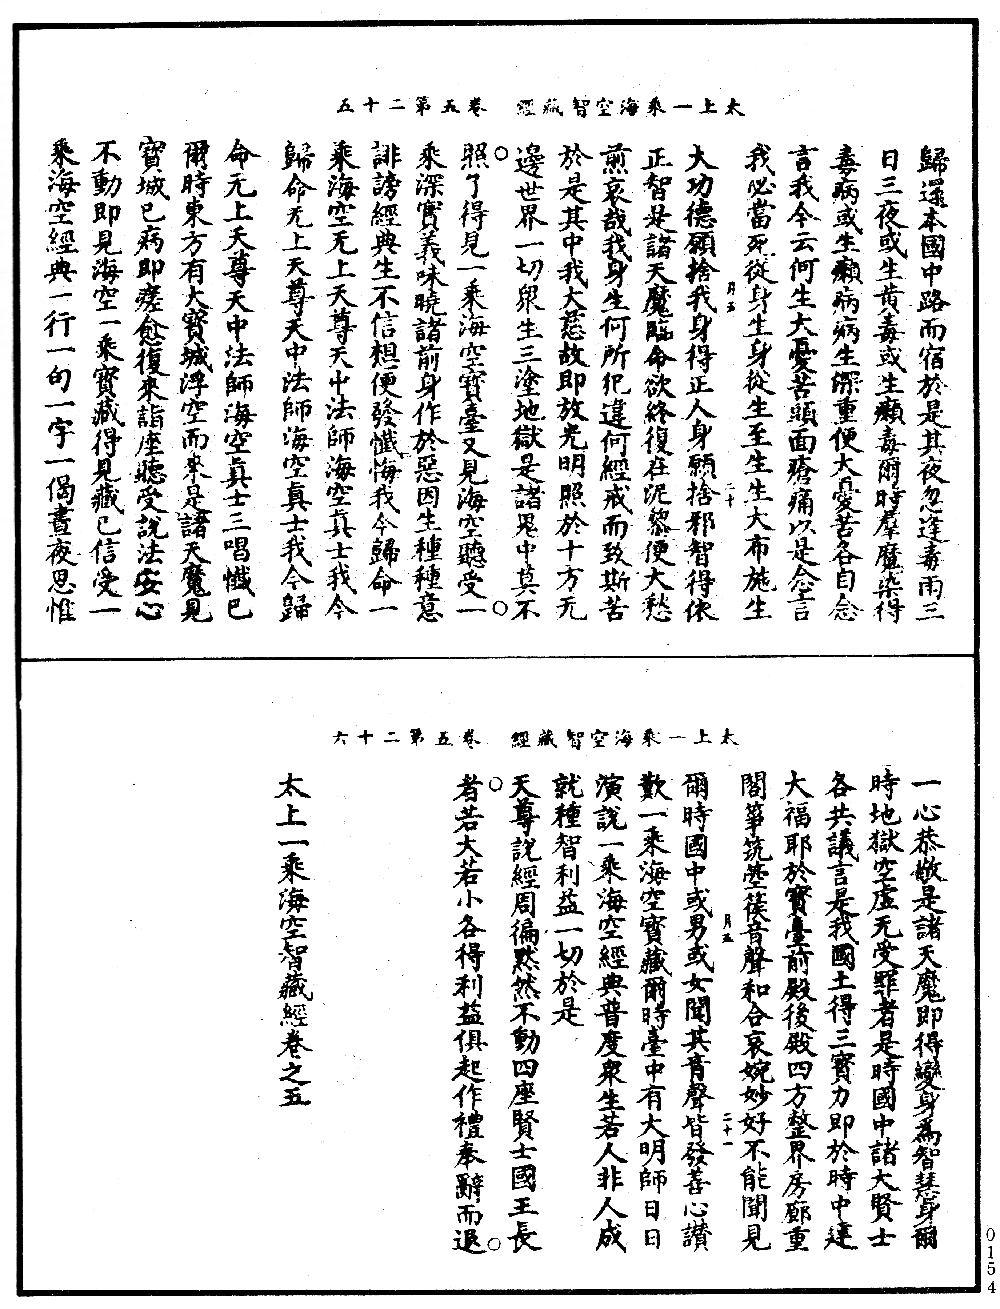 太上一乘海空智藏經　卷五第二十五
歸還本國中路而宿於是其夜忽逢毒雨三
日三夜或生黃毒或生癩毒爾時羣魔染得
毒病或生癩病病生深重便大憂苦各自念
言我今云何生大憂苦頭面瘡痛以是念言
我必當死從身生身從生至生生大布施生
月五
二十
大功德願捨我身得正人身願捨邪智得依
正智是諸天魔臨命欲終復在泥黎便大愁
煎哀哉我身生何所犯違何經戒而致斯苦
於是其中我大慈故即放光明照於十方无
邊世界一切眾生三塗地獄是諸鬼中莫不
照了得見一乘海空寶臺又見海空聽受一
乘深實義味曉諸前身作於惡因生種種意
誹謗經典生不信想便發懺悔我今歸命一
乘海空无上天尊天中法師海空真士我今
歸命无上天尊天中法師海空真士我今歸
命无上天尊天中法師海空真士三唱懺已
爾時東方有大寶城浮空而來是諸天魔見
寶城已病即瘥愈復來詣座聽受說法安心
不動即見海空一乘寶藏得見藏已信受一
乘海空經典一行一句一字一偈晝夜思惟
太上一乘海空智藏經　卷五第二十六
一心恭敬是諸天魔即得變身為智慧身爾
時地獄空虛无受罪者是時國中諸大賢士
各共議言是我國土得三寶力即於時中建
大福耶於寶臺前殿後殿四方整界房廊重
閣箏筑箜篌音聲和合哀婉妙好不能聞見
月五
二十一
爾時國中或男或女聞其音聲皆發善心讚
歎一乘海空寶藏爾時臺中有大明師日日
演說一乘海空經典普度眾生若人非人成
就種智利益一切於是
天尊說經周徧默然不動四座賢士國王長
者若大若小各得利益俱起作禮奉辭而退
太上一乘海空智藏經卷之五
0154